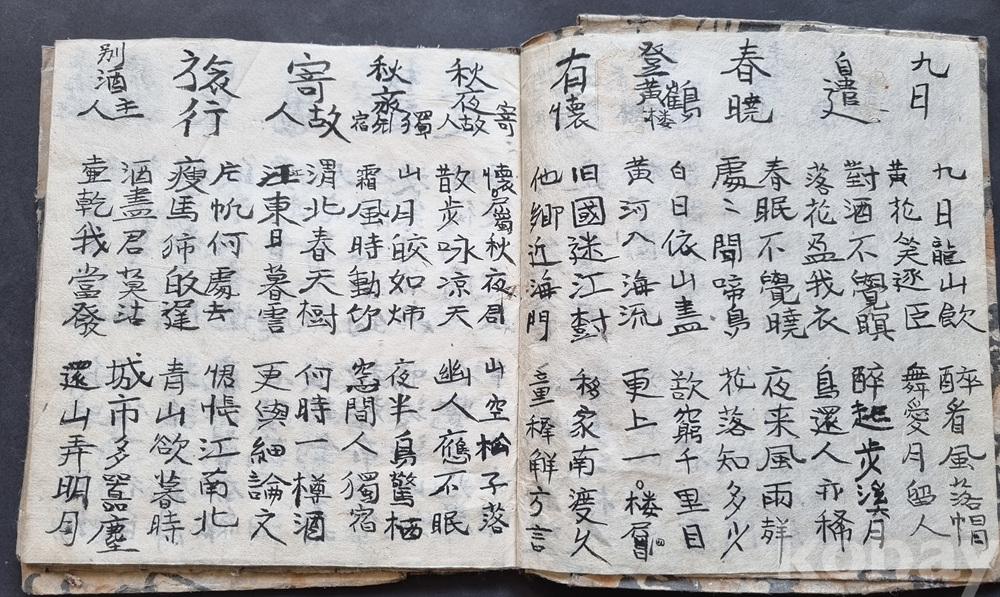 九日
九日龍山飲 醉看風落帽
黄花笑逐臣 舞愛月留人
自遣
對酒不覺瞑 醉起步溪月
落花盈我衣 鳥還人亦稀
春曉
春眠不覺曉 夜来風雨群
處〻聞啼鳥 花落知多少
登黄鶴楼
白日依山盡 欲窮千里目
黄河入海流 更上一楼層
有懷
旧國迷江樹 移家南渡久
他鄉近海門 童穉解方言
秋夜寄故人
懷屬秋夜君 山空松子落
散步咏凉天 幽人應不眠
秋夜獨宿
山月皎如烛 夜半鳥驚栖
霜風時動竹 窓間人獨宿
寄故人
渭北春天樹 何時一樽酒
江東日暮雲 更與細論文
旅行
片帆何處去 惆悵江南北
瘦馬帰的遲 青山欲暮時
别酒主人
酒盡君莫沽 城市多囂塵
壷乾我當發 還山弄明月
kobay